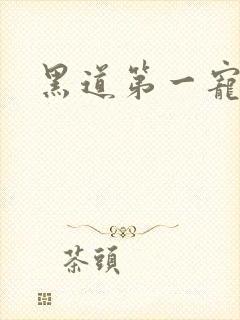 黑道第一寵
茶頭